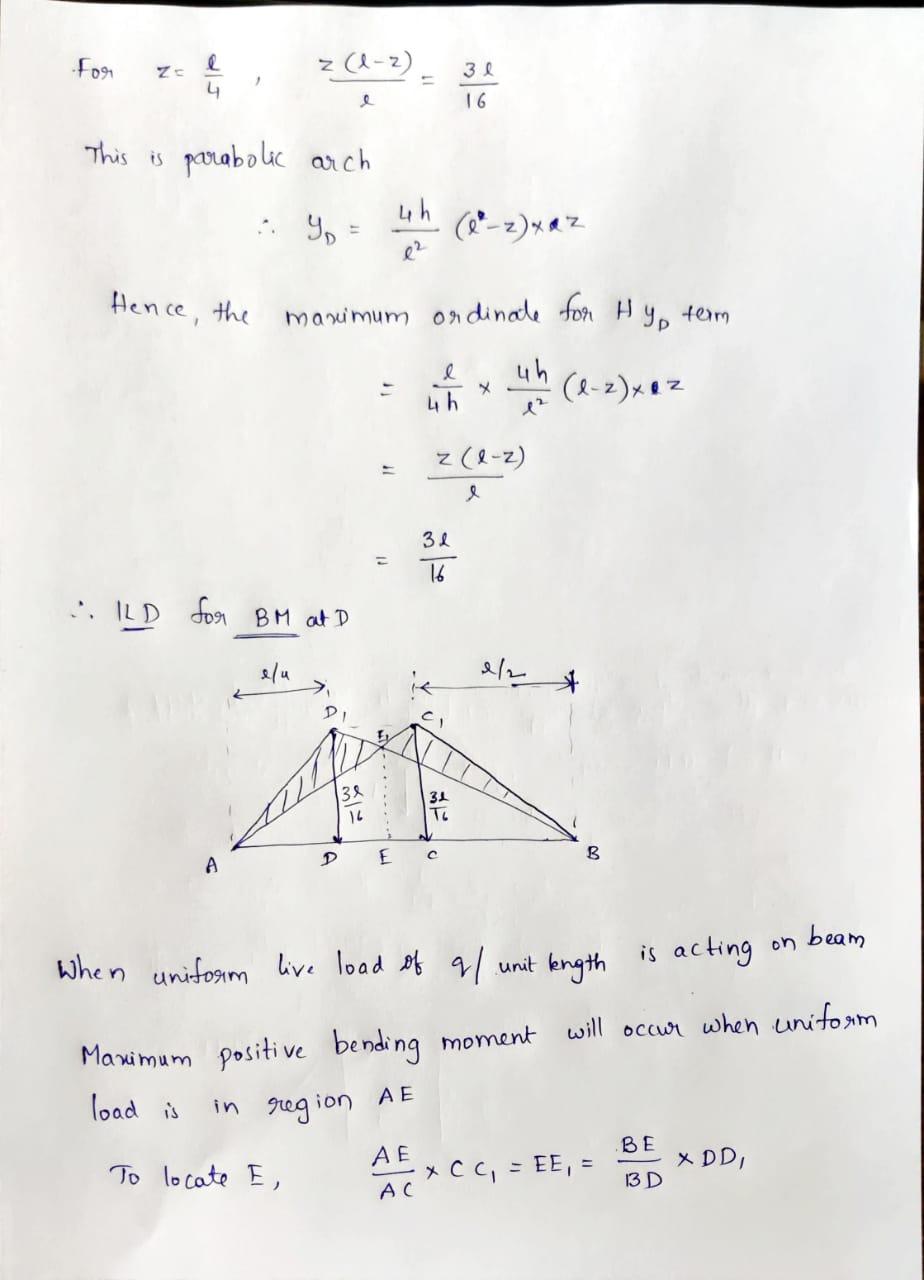 For z = l/4 , z(l-z)/l = 3l/16
This is parabolic arch
∴ y_D = 4h/l² (l-z)×z
Hence, the maximum ordinate for H y_D term
= l/4h × 4h/l² (l-z)×z
= z(l-z)/l
= 3l/16
∴ ILD for BM at D
l/4 l/2
D₁ E₁ C₁
3l/16 3l/16
A D E C B
When uniform live load of q/ unit length is acting on beam
Maximum positive bending moment will occur when uniform
load is in region AE
To locate E, AE/AC × CC₁ = EE₁ = BE/BD × DD₁